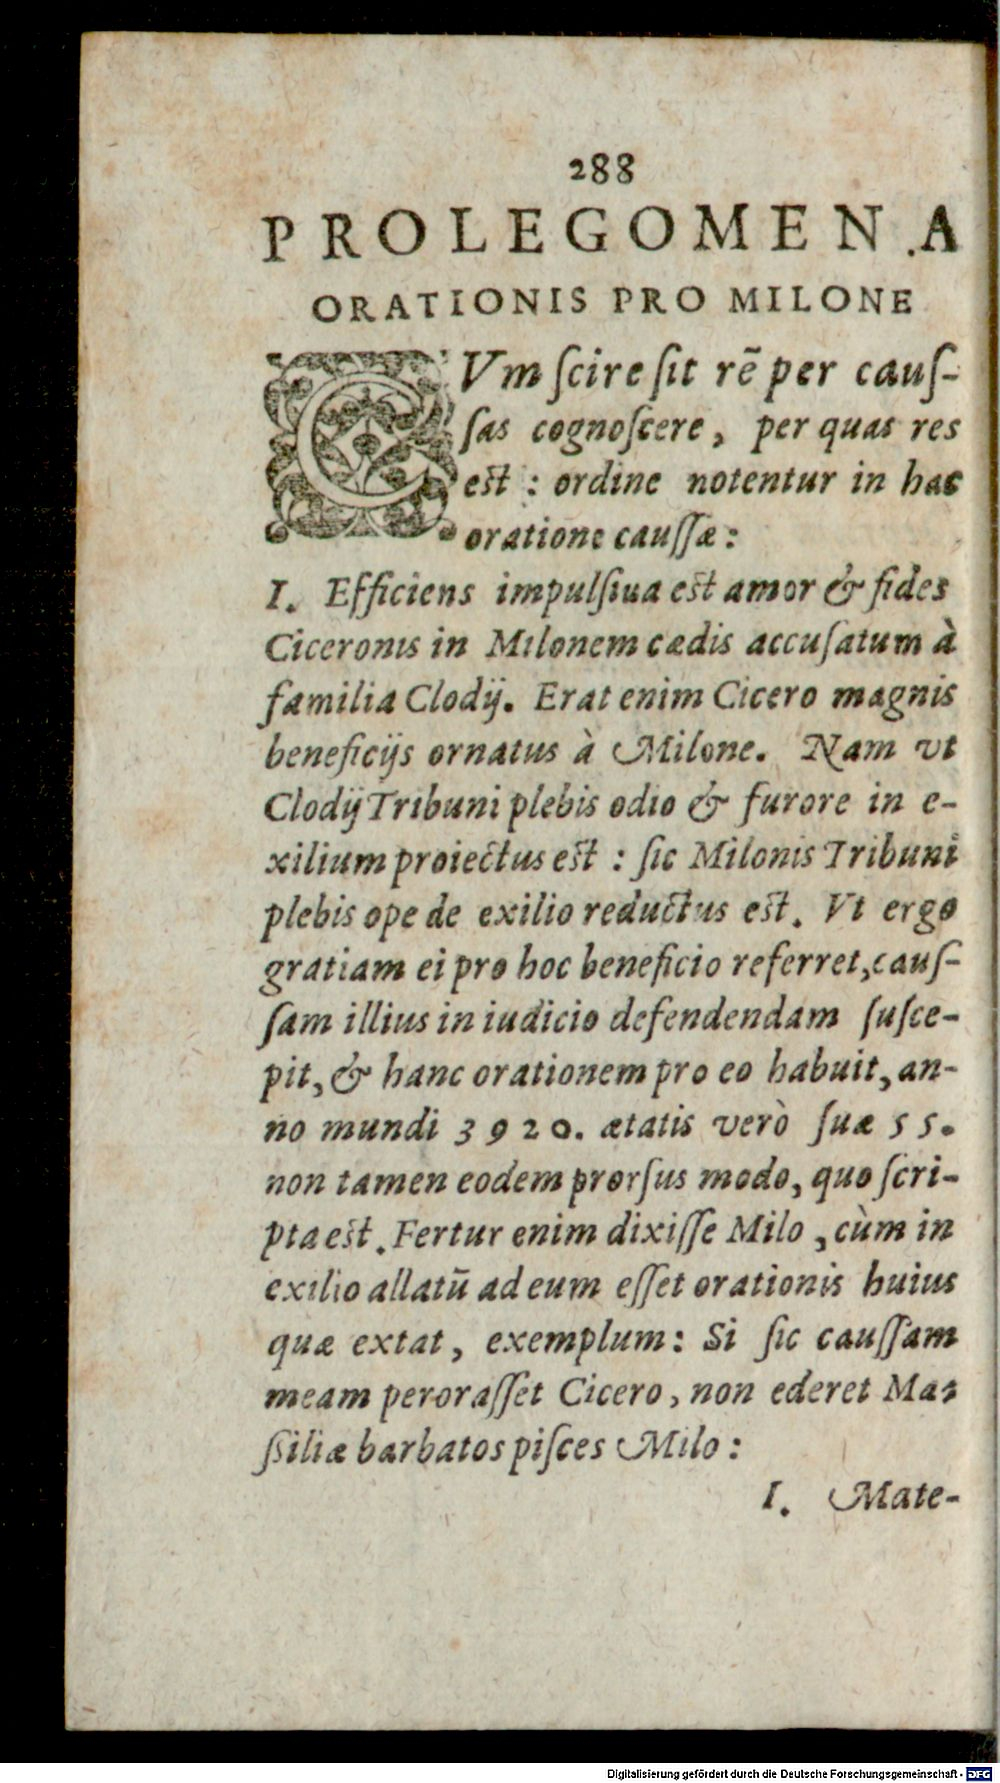 288
PROLEGOMEN.A
ORATIONIS PRO MILONE
CVm ſcire ſit rẽ per cauſ-
ſas cognoſcere, per quas res
est : ordine notentur in hac
oratione cauſſæ :
I. Efficiens impulſiua est amor & fides
Ciceronis in Milonem cædis accuſatum à
familia Clodij. Erat enim Cicero magnis
beneficijs ornatus à Milone. Nam vt
Clodij Tribuni plebis odio & furore in e-
xilium proiectus est : ſic Milonis Tribuni
plebis ope de exilio reductus est. Vt ergo
gratiam ei pro hoc beneficio referret, cauſ-
ſam illius in iudicio defendendam ſuſce-
pit, & hanc orationem pro eo habuit, an-
no mundi 3920. ætatis verò ſuæ 55.
non tamen eodem prorſus modo, quo ſcri-
pta est. Fertur enim dixiſſe Milo, cùm in
exilio allatũ ad eum eſſet orationis huius
quæ extat, exemplum: Si ſic cauſſam
meam peroraſſet Cicero, non ederet Maſ-
ſiliæ barbatos piſces Milo :
I. Mate-
Digitalisierung gefördert durch die Deutsche Forschungsgemeinschaft - DFG